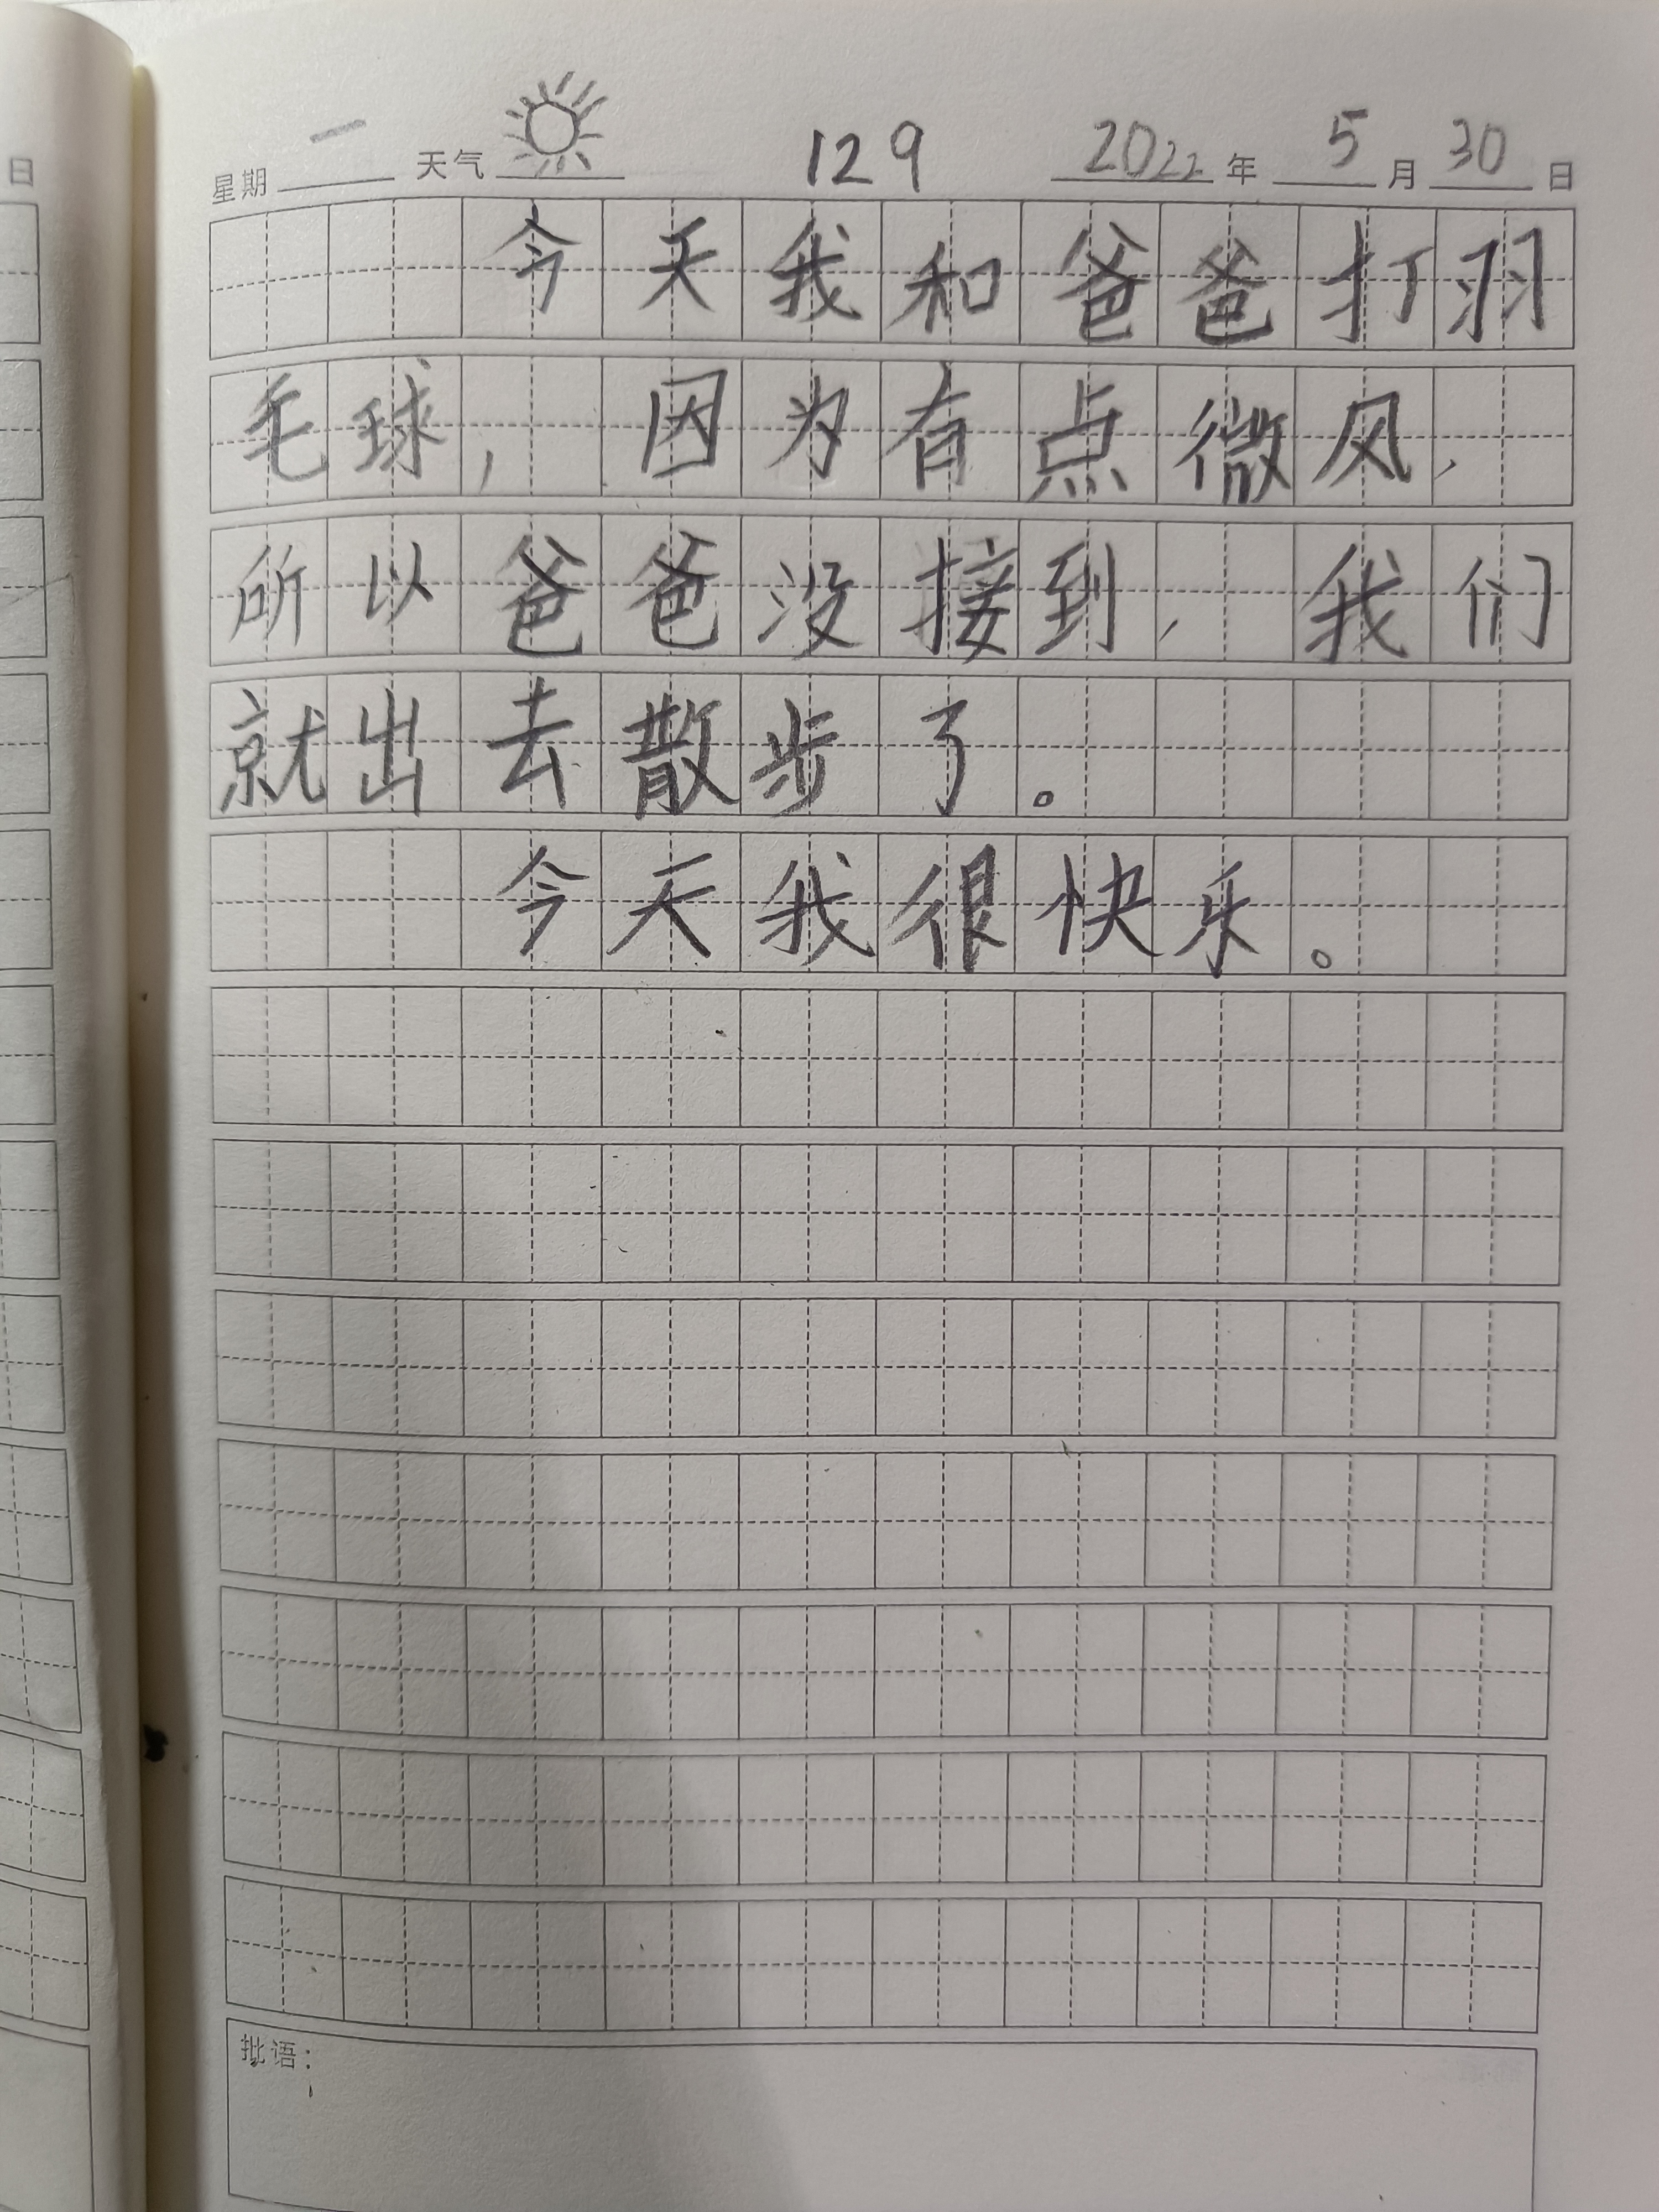 日
星期 一 天气 129 2022 年 5 月 30 日
今天我和爸爸打羽
毛球，因为有点微风，
所以爸爸没接到，我们
就出去散步了。
今天我很快乐。
批语：